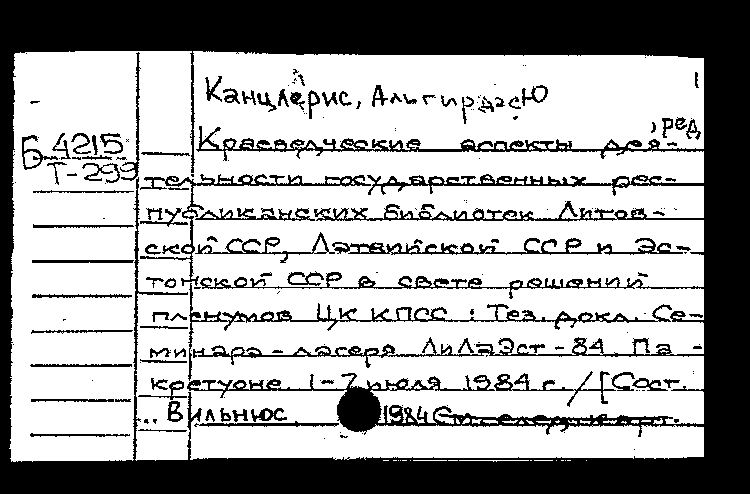 1
Канцлерис, Альгирдас Ю
, ред
Б 4215
Т-299
Краеведческие аспекты дея-
тельности государственных рес-
публиканских библиотек Литов-
ской ССР, Латвийской ССР и Эс-
тонской ССР в свете решений
пленумов ЦК КПСС : Тез. докл. Се-
минара-лагеря ЛиЛаЭст-84. Па-
кретуоне. 1-7 июля 1984 г. / [Сост.
... Вильнюс. 1984 См. след. карт.